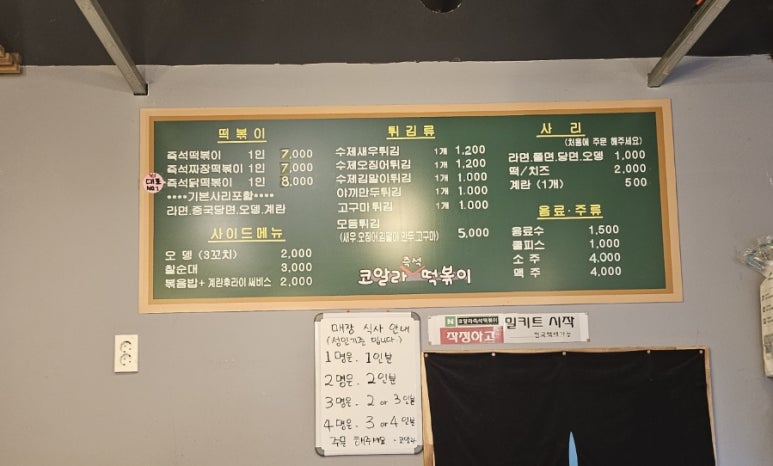 떡볶이
즉석떡볶이 1인 7,000
즉석짜장떡볶이 1인 7,000
즉석닭떡볶이 1인 8,000
****기본사리포함****
라면.중국당면.오뎅.계란
대표
NO.1
사이드메뉴
오 뎅 (3꼬치) 2,000
찰순대 3,000
볶음밥+계란후라이 써비스 2,000
튀김류
수제새우튀김 1개 1,200
수제오징어튀김 1개 1,200
수제김말이튀김 1개 1.000
야끼만두튀김 1개 1.000
고구마튀김 1개 1.000
모듬튀김
(새우.오징어.김말이.만두.고구마) 5,000
코알라 즉석 떡볶이
사 리
(처음에 주문 해주세요)
라면.쫄면.당면.오뎅 1,000
떡/치즈 2,000
계란 (1개) 500
음료·주류
음료수 1,500
쿨피스 1,000
소 주 4,000
맥 주 4,000
매장 식사 안내
(성인기준 입니다.)
1명은. 1인분
2명은. 2인분
3명은. 2 or 3인분
4명은. 3 or 4인분
주문 해주세요
N 코알라즉석떡볶이 밀키트 시작
작정하고
전국택배가능